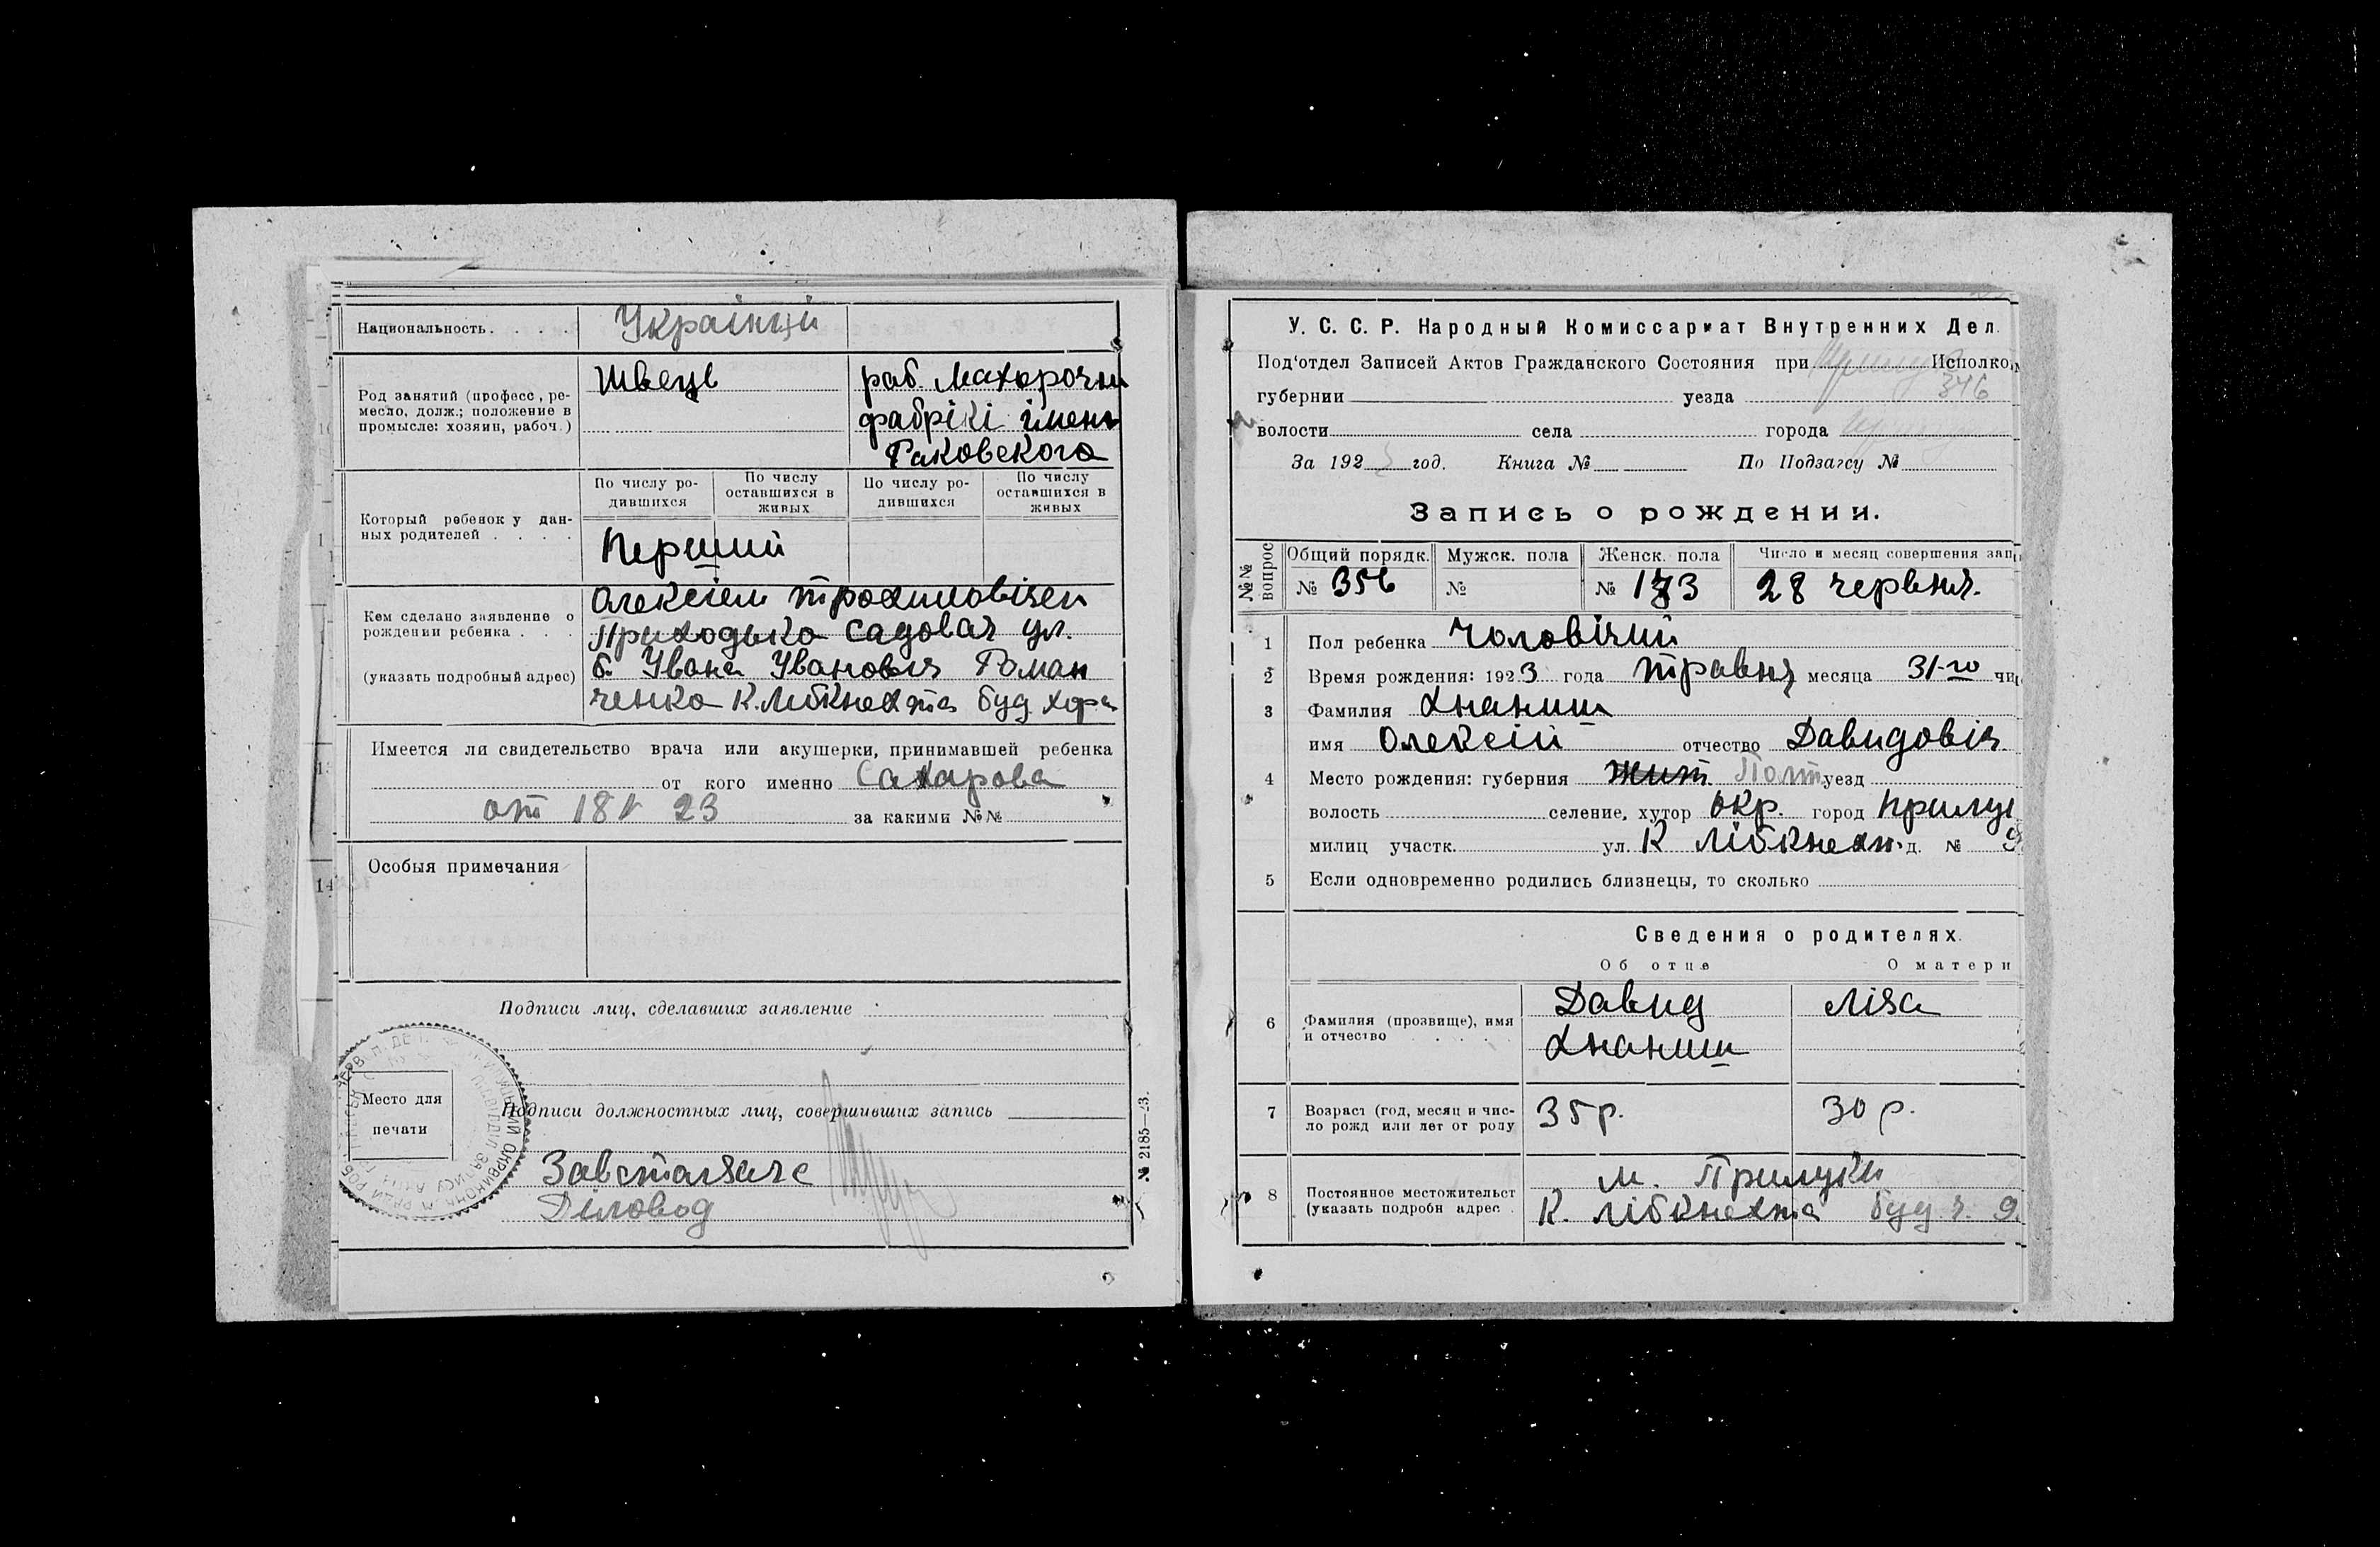 Национальность. . . . . Українці
Род занятий (професс, ре-
месло, долж.; положение в
промысле: хозяин, рабоч.)
Швець
раб. Махорочн
фабрікі імени
Раковского
Который ребенок у дан-
ных родителей . . . .
По числу ро-
дившихся
По числу
оставшихся в
живых
По числу ро-
дившихся
По числу
оставшихся в
живых
Перший
Кем сделано заявление о
рождении ребенка . . .
(указать подробный адрес)
Олексієм Трохимовічем
Приходько Садовая ул.
б. Увана Увановія Роман
ченко К. Лібкнехта буд.
Имеется ли свидетельство врача или акушерки, принимавшей ребенка
от кого именно Сахарова
от 18 V 23 за какими №№
Особыя примечания
14
Подписи лиц, сделавших заявление
Место для
печати
Подписи должностных лиц, совершивших запись
Діловод
№ 2185—23.
У. С. С. Р. Народный Комиссариат Внутренних Дел.
Под'отдел Записей Актов Гражданского Состояния при Исполком
346
губернии уезда
волости села города
За 192 год. Книга № По Подзагсу №
Запись о рождении.
№№ вопрос
Общий порядк. Мужск. пола Женск. пола Число и месяц совершения зап
№ 356 № № 173 28 червня.
1 Пол ребенка Чоловічий
2 Время рождения: 1923 года травня месяца 31-го чи
3 Фамилия Хнаниш
имя Олексій отчество Давидовіч
4 Место рождения: губерния Жит Полт уезд
волость селение, хутор окр. город Прилу
милиц участк. ул. К Лібкнехт. д. № 9
5 Если одновременно родились близнецы, то сколько
Сведения о родителях.
Об отце О матери
6 Фамилия (прозвище), имя
и отчество . . . .
Давид
Хнаниш
Ліза
7 Возраст (год, месяц и чис-
ло рожд или лет от роду
35 р. 30 р.
8 Постоянное местожительст
(указать подробн адрес .
м. Прилуки
К. Лібкнехта буд. ч. 9.